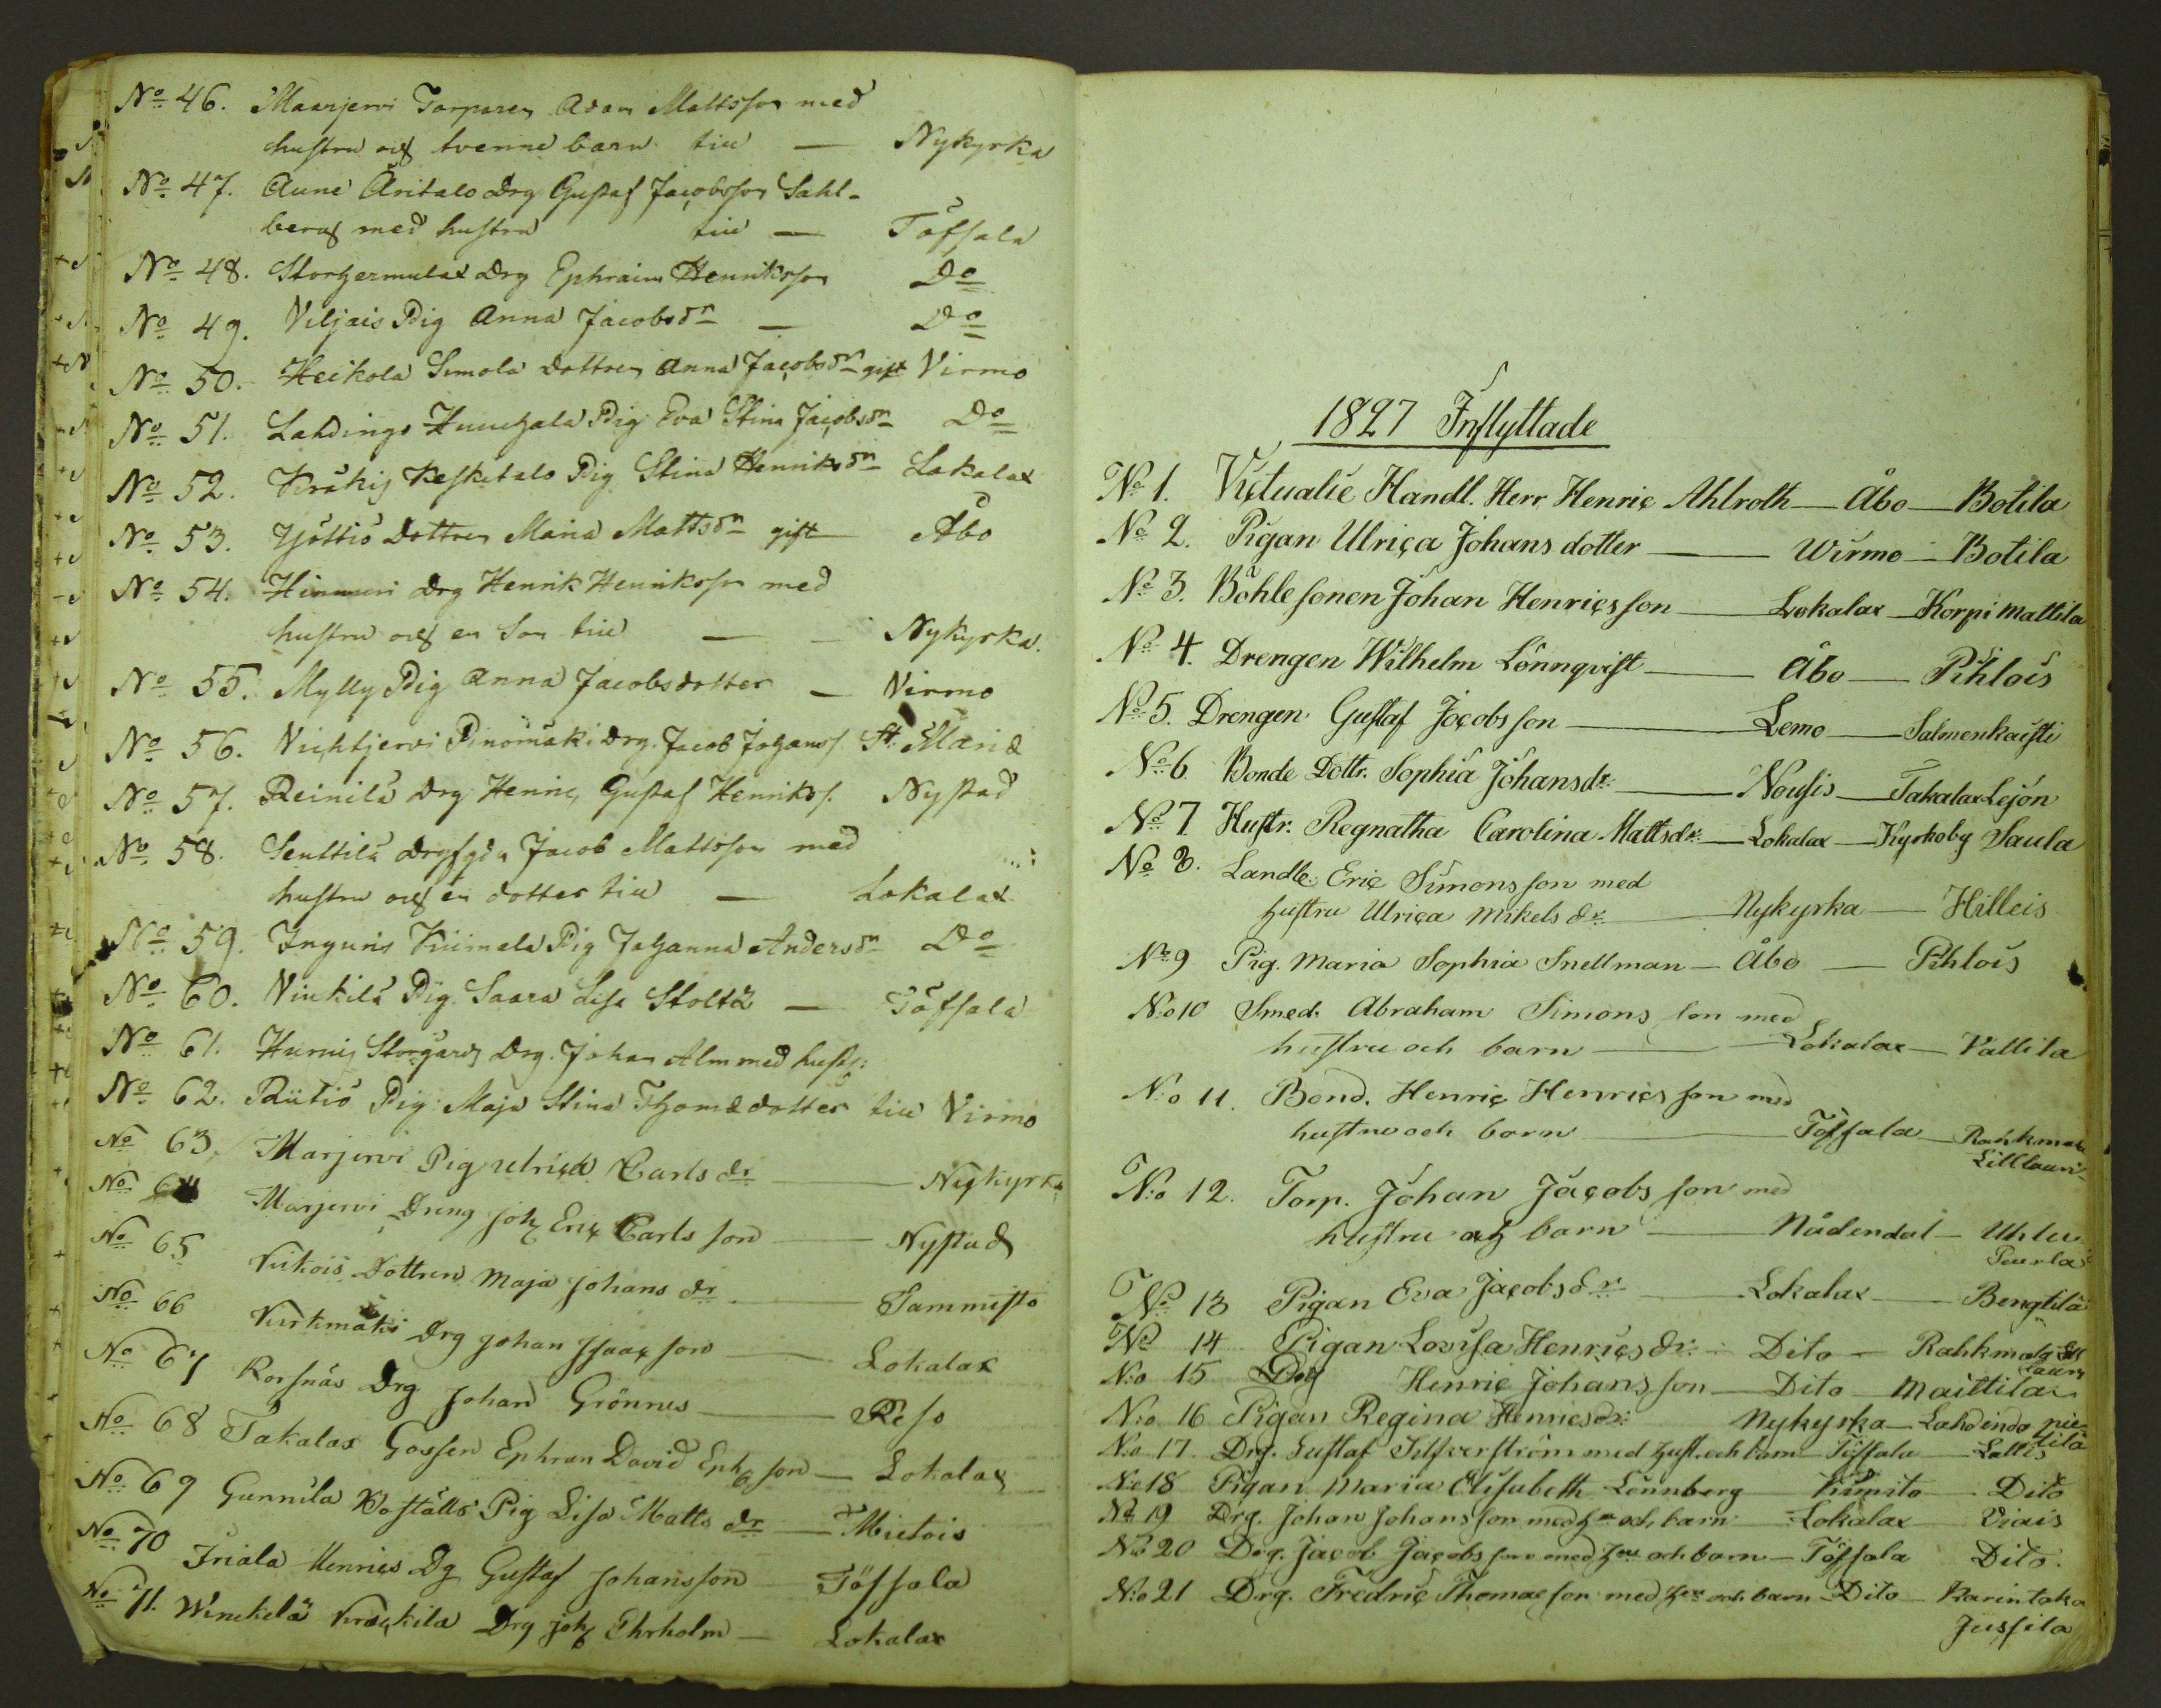 No 46. Maarjervi Torparen Adam Mattsson med
hustru och tvenne barn till — Nykyrka
No 47. Aune Äritalo Drg Gustaf Jacobsson Sahl-
berg med hustru till — Töfsala
No 48. Storhermula Drg Ephraim Henriksson Do
No 49. Viljais Pig Anna Jacobsdr — Do
No 50. Heikola Simola Dottren Anna Jacobsdr gift Virmo
No 51. Lahdingo Pig Eva Stina Jacobsdr Do
No 52. Kesketalo Pig Stina Henriksdr Lokalax
No 53. Dottren Maria Mattsdr gift — Åbo
No 54. Drg Henrik Henriksson med
hustru och en Son till — Nykyrka.
No 55. Mylly Pig Anna Jacobsdotter — Virmo
No 56. Drg. Jacob Johanss. St. Mariæ
No 57. Reinilä Drg Henric Gustaf Henrikss. Nystad
No 58. Senttilä Jacob Mattsson med
hustru och en dotter till — Lokalax
No 59. Inguris Pig Johanna Andersdr Do
No 60. Pig. Saara Lisa Stoltz — Töfsala
No 61. Storgård Drg. Johan Alm med hust:
No 62. Pig: Maja Stina Thomædotter till Virmo
No 63. Marjervi Pig Ulrica Carlsdr — Nykyrka
No 64 Marjervi Dreng Joh Eric Carlsson — Nystad
No 65 Dottren Maja Johansdr — Sammisto
No 66 Kurkmäki Drg Johan Isaacson — Lokalax
No 67 Korsnäs Drg Johan Grönnus — Reso
No 68 Takalax Gossen Ephran David Eph son — Lokalax
No 69 Gunnila Pig Lisa Matts dr — Mietois
No 70 Friala Henrics Dg Gustaf Johansson Töfsala
No 71. Winckelä Drg Joh Ehrholm — Lokalax
1827 Inflyttade
No 1. Victualie Handl. Herr Henric Ahlroth — Åbo — Botila
No 2. Pigan Ulrica Johans dotter — Wirmo — Botila
No 3. Böhle sonen Johan Henricsson — Lokalax — Korpi Mattila
No 4. Drengen Wilhelm Lönnqvist — Åbo — Pihlois
No 5. Drengen Gustaf Jacobsson — Lemo — Salmenkaisti
No 6 Bonde Dottr. Sophia Johansdr — Nousis — Takalax Lejon
No 7 Hustr. Regnatha Carolina Mattsdr — Lokalax — Kyrkoby Saula
No 8. Landb. Eric Simons son med
hustru Ulrica Mikels dr — Nykyrka — Hilleis
No 9 Pig. Maria Sophia Snellman — Åbo — Pihlois
N:o 10 Smed. Abraham Simons son med
hustru och barn — Lokalax — Vallila
N:o 11. Bond. Henric Henrics son med
hustru och barn — Töfsala — Rahkmala
Lilltauri
N:o 12. Torp. Johan Jacobs son med
hustru och barn — Nådendal — Uhlu
Puurla
No 13 Pigan Eva Jacobsdr — Lokalax — Bengtilä
No 14 Pigan Lovisa Henricsdr: — Dito — Rahkmala
N:o 15 Henric Johans son — Dito — Maittila
N:o 16 Pigan Regina Henricsdr: Nykyrka — Lahdindo Pie
tilä
N:o 17. Drg. Gustaf Silfverström med hust. och barn — Töfsala — Lallis
N:o 18 Pigan Maria Elisabeth Lönnberg Kimito — Dito
No 19 Drg. Johan Johansson med h:u och barn Lokalax — Viais
N:o 20 Drg. Jacob Jacobs son med h:u och barn — Töfsala Dito.
N:o 21 Drg. Fredric Thomæ son med h:u och barn — Dito — Karintaka
Jussila